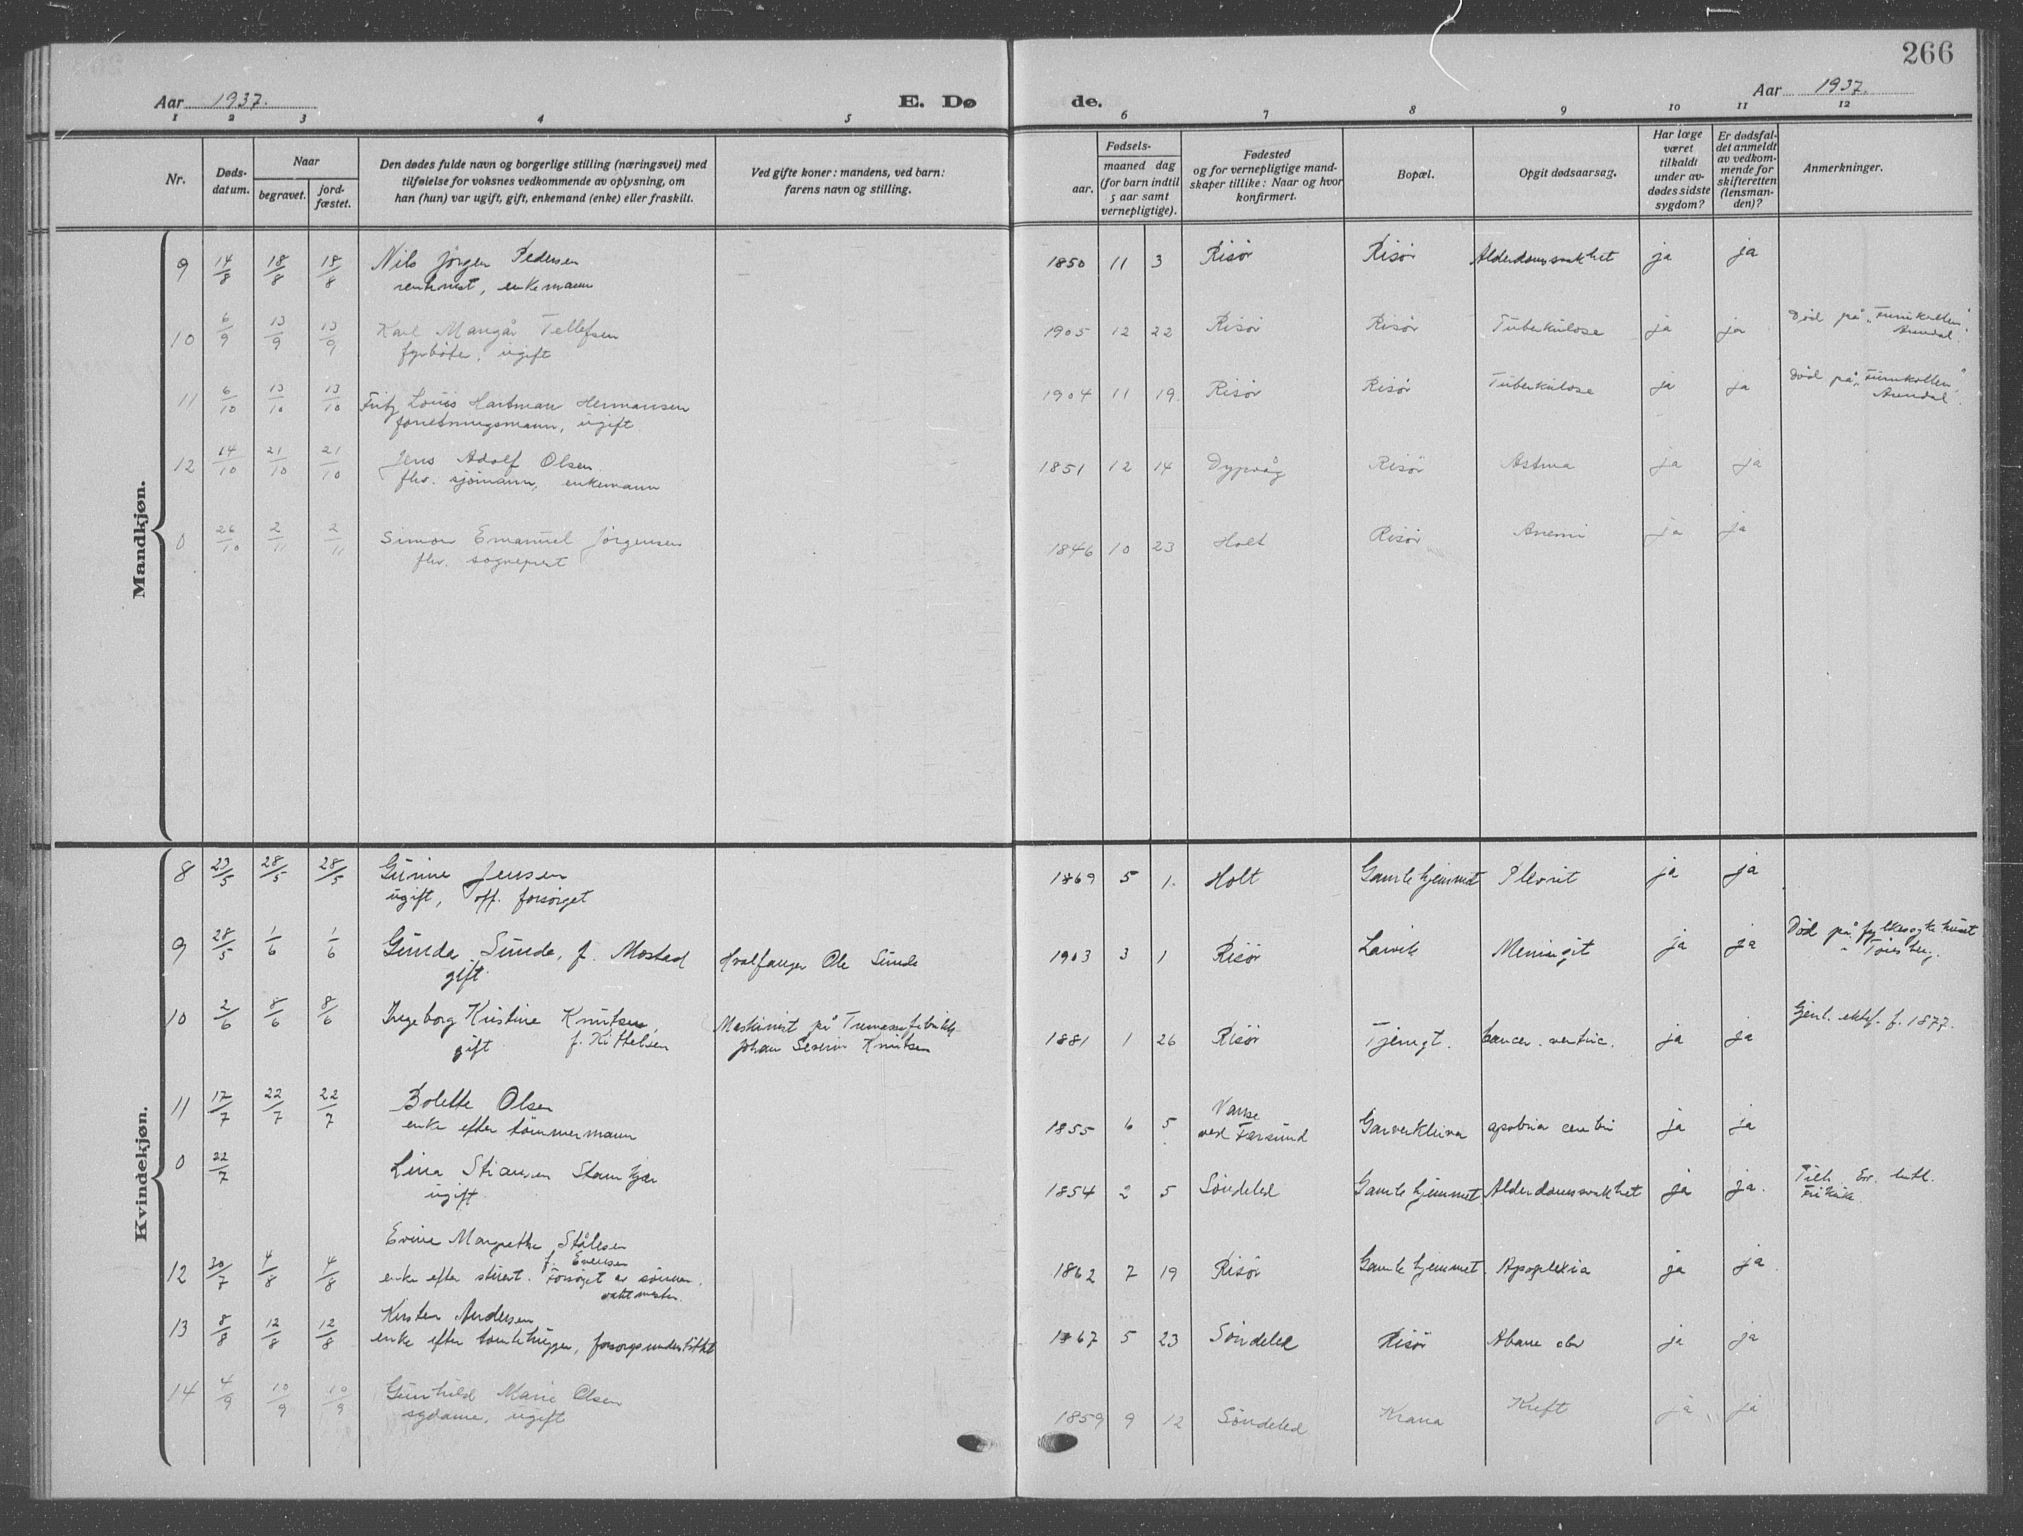 266
Aar 1937. E. Dø de. Aar 1937.
1 2 3 4 5 6 7 8 9 10 11 12
Nr.
Døds-
datum.
Naar
begravet.
jord-
fæstet.
Den dødes fulde navn og borgerlige stilling (næringsvei) med
tilføielse for voksnes vedkommende av oplysning, om
han (hun) var ugift, gift, enkemand (enke) eller fraskilt.
Ved gifte koner: mandens, ved barn:
farens navn og stilling.
Fødsels-
aar.
maaned dag
(for barn indtil
5 aar samt
vernepligtige).
Fødested
og for vernepligtige mand-
skaper tillike: Naar og hvor
konfirmert.
Bopæl.
Opgit dødsaarsag.
Har læge
været
tilkaldt
under av-
dødes sidste
sygdom?
Er dødsfal-
det anmeldt
av vedkom-
mende for
skifteretten
(lensman-
den)?
Anmerkninger.
Mandkjøn.
9 14/8 18/8 18/8 Nils Jørgen Pedersen 1850 11 3 Risør Risør Alderdomssvakhet ja ja
rentenist, enkemann
10 6/9 13/9 13/9 Karl Mangår Tellefsen 1905 12 22 Risør Risør Tuberkulose ja ja Død på „Furukollen".
fyrbøter, ugift Arendal.
11 6/10 13/10 13/10 Fritz Louis Hartman Hermansen 1904 11 19. Risør Risør Tuberkulose ja ja Død på „Furukollen"
forretningsmann, ugift. Arendal.
12 14/10 21/10 21/10 Jens Adolf Olsen 1851 12 14 Dypvåg Risør Astma ja ja
fhv. sjømann, enkemann
0 26/10 2/11 2/11 Simon Emanuel Jørgensen 1846 10 23 Holt Risør Anemi ja ja
fhv. sogneprest
Kvindekjøn.
8 23/5 28/5 28/5 Gunne Jensen 1869 5 1. Holt Gamlehjemmet Plevrit ja ja
ugift, off. forsørget
9 28/5 1/6 1/6 Gunda Sunde, f. Mostad Hvalfanger Ole Sunde 1903 3 1 Risør Larvik Meningit ja ja Død på fylkessykehuset
gift i Tønsberg.
10 2/6 8/6 8/6 Ingeborg Kristine Knutsen, Maskinist på Tremassefabrikk 1881 1 26 Risør Tjenngt. Cancer. ventric. ja ja f. 1877.
gift f. Kittelsen Johan Severin Knutsen
11 17/7 22/7 22/7 Bolette Olsen 1855 6 5 Vanse
ved Farsund Garverkleiva cerebri ja ja
enke efter tømmermann
0 22/7 Lina Stiansen 1854 2 5 Søndeled Gamlehjemmet Alderdomssvakhet ja ja. Tilh. Ev. luth.
ugift. Frikirke.
Evine Margrethe Stålesen
f. Evensen
12 30/7 4/8 4/8 enke efter stuert. Forsørget av sønnen, 1862 7 19 Risør Gamlehjemmet Apoplexia ja ja
vaktmester.
Kirsten Andersen
13 8/8 12/8 12/8 enke efter tomtehugger, forsorgsunderstøttet 1867 5 23 Søndeled Risør ja ja
14 4/9 10/9 10/9 Gunhild Marie Olsen 1859 9 12 Søndeled Krana Kreft ja ja
sydame, ugift